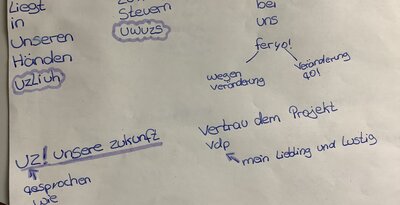 Liegt
in
Unseren
Händen
UZLiUH
Steuern
UWUZS
bei
uns
feryo!
wegen
veränderung
Veränderung
go!
UZ! Unsere zukunft
gesprochen
wie
Vertrau dem Projekt
Vdp
mein Liebling und Lustig